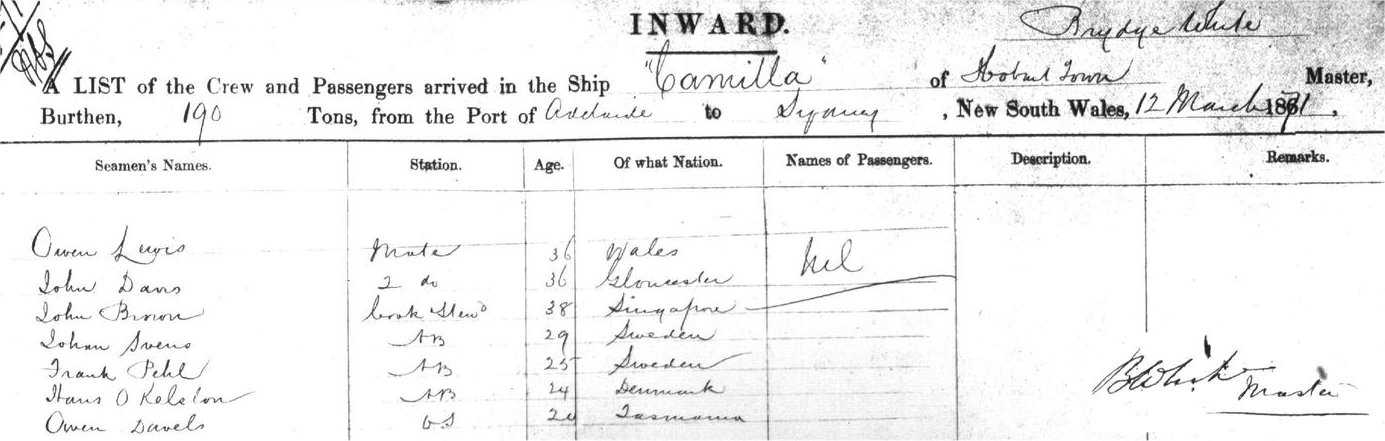 INWARD.
Brydge White
A LIST of the Crew and Passengers arrived in the Ship "Camilla" of Hobart Town Master,
Burthen, 190 Tons, from the Port of Adelaide to Sydney, New South Wales, 12 March 1871,
Seamen's Names. Station. Age. Of what Nation. Names of Passengers. Description. Remarks.
Owen Lewis Mate 36 Wales Nil
John Davis 2 do 36 Gloucester
John Brown Cook Stewd 38 Singapore
Johan Svens AB 29 Sweden
Frank Pehl AB 25 Sweden
Hans O Kelston AB 24 Denmark
Owen Davels OS 20 Tasmania
B White Master